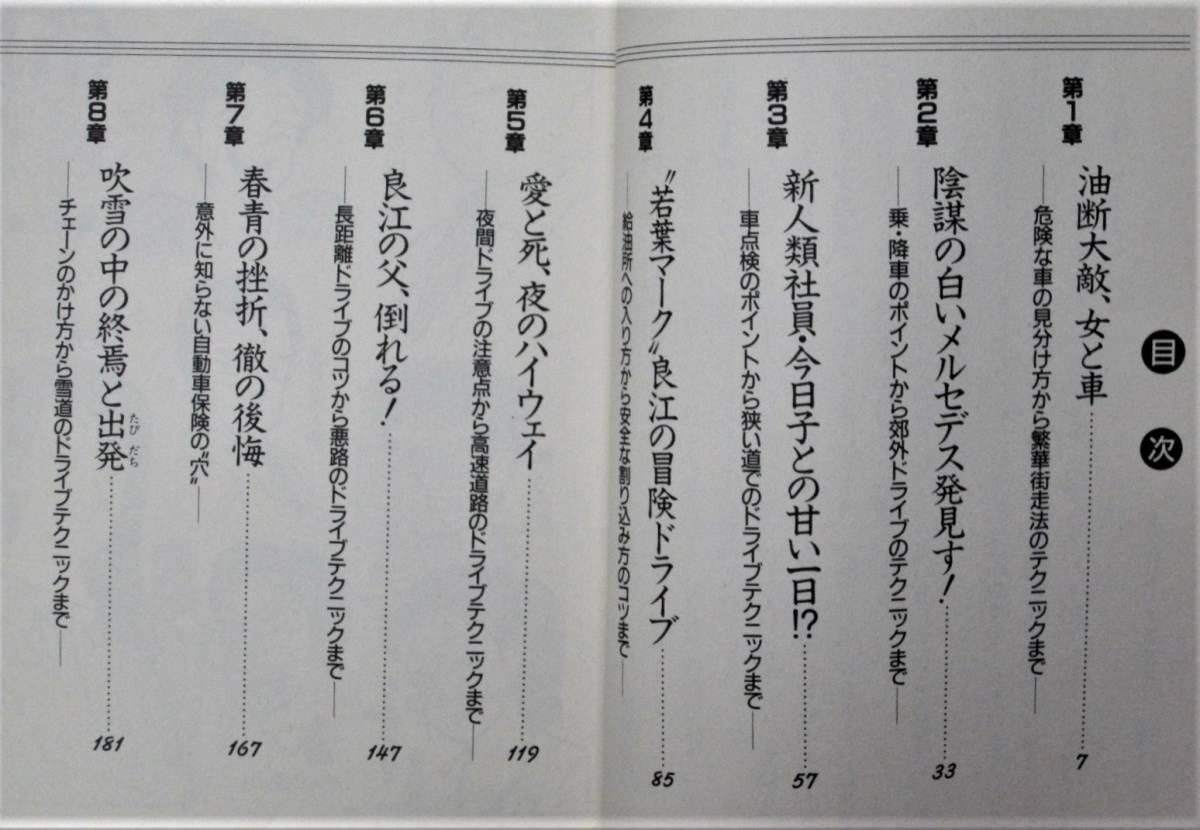 目次
第1章
油断大敵、女と車……7
——危険な車の見分け方から繁華街走法のテクニックまで——
第2章
陰謀の白いメルセデス発見す！……33
——乗・降車のポイントから郊外ドライブのテクニックまで——
第3章
新人類社員・今日子との甘い一日!?……57
——車点検のポイントから狭い道でのドライブテクニックまで——
第4章
〝若葉マーク〟良江の冒険ドライブ……85
——給油所への入り方から安全な割り込み方のコツまで——
第5章
愛と死、夜のハイウェイ……119
——夜間ドライブの注意点から高速道路のドライブテクニックまで——
第6章
良江の父、倒れる！……147
——長距離ドライブのコツから悪路のドライブテクニックまで——
第7章
春青の挫折、徹の後悔……167
——意外に知らない自動車保険の〝穴〟——
第8章
吹雪の中の終焉と出発（たびだち）……181
——チェーンのかけ方から雪道のドライブテクニックまで——